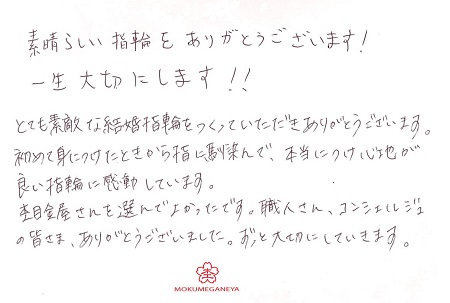 素晴らしい指輪をありがとうございます!
一生大切にします!!
とても素敵な結婚指輪をつくっていただきありがとうございます。
初めて身につけたときから指に馴染んで、本当につけ心地が
良い指輪に感動しています。
杢目金屋さんを選んでよかったです。職人さん、コンシェルジュ
の皆さま、ありがとうございました。ずっと大切にしていきます。
MOKUMEGANEYA